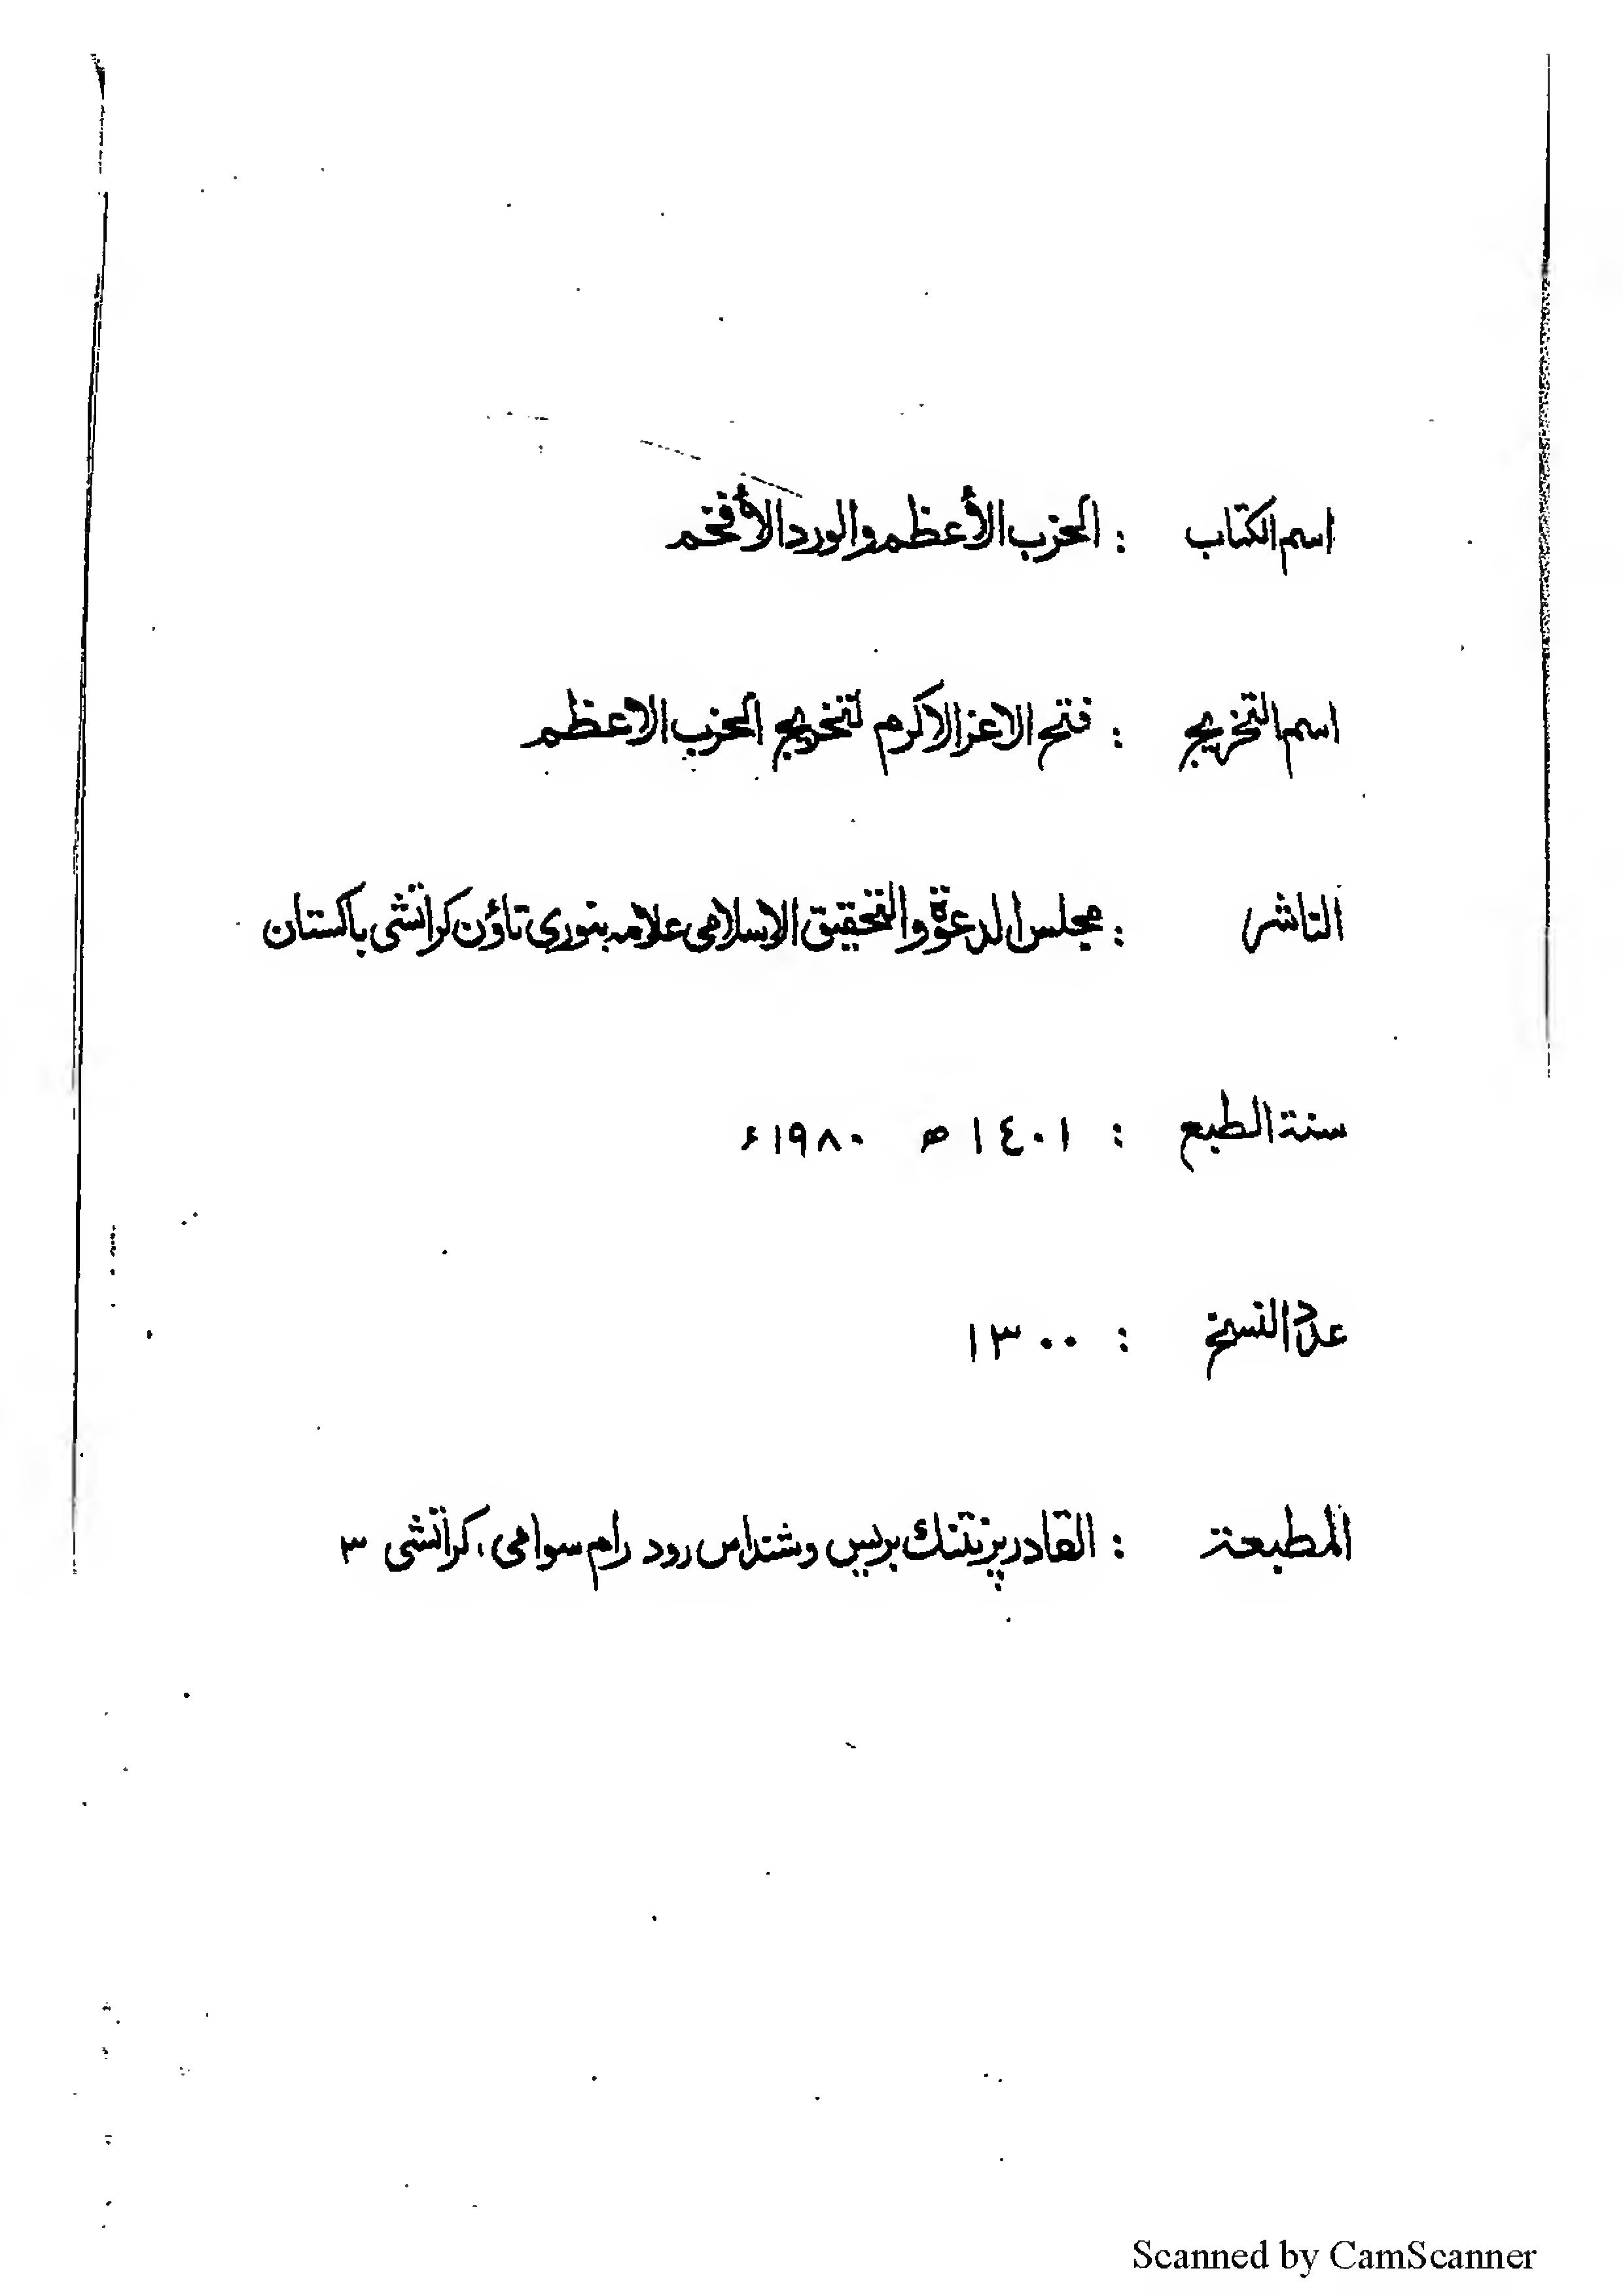 اسم الكتاب : الحزب الأعظم والورد الأفخم
اسم التخريج : فتح الاعز الاكرم لتخريج الحزب الاعظم
الناشر : مجلس الدعوة والتحقيق الاسلامى علامه بنورى تاؤن كراتشى باكستان
سنة الطبع : ١٤٠١ ھ ١٩٨٠ ء
عدد النسخ : ١٣٠٠
المطبعة : القادر پرنتنك پريس وشنداس رود رام سوامى، كراتشى ٣
Scanned by CamScanner